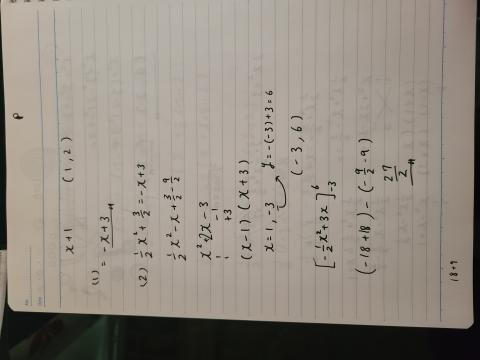 P
x+1 (1,2)
(1) = -x+3
(2) \frac{1}{2}x²+\frac{3}{2}=-x+3
\frac{1}{2}x²-x+\frac{3}{2}-\frac{9}{2}
x²+2x-3
1 -1
1 +3
(x-1)(x+3)
x=1,-3 y=-(-3)+3=6
(-3,6)
[-\frac{1}{2}x²+3x]^{6}_{-3}
(-18+18)-(-\frac{9}{2}-9)
\frac{27}{2}
18+9